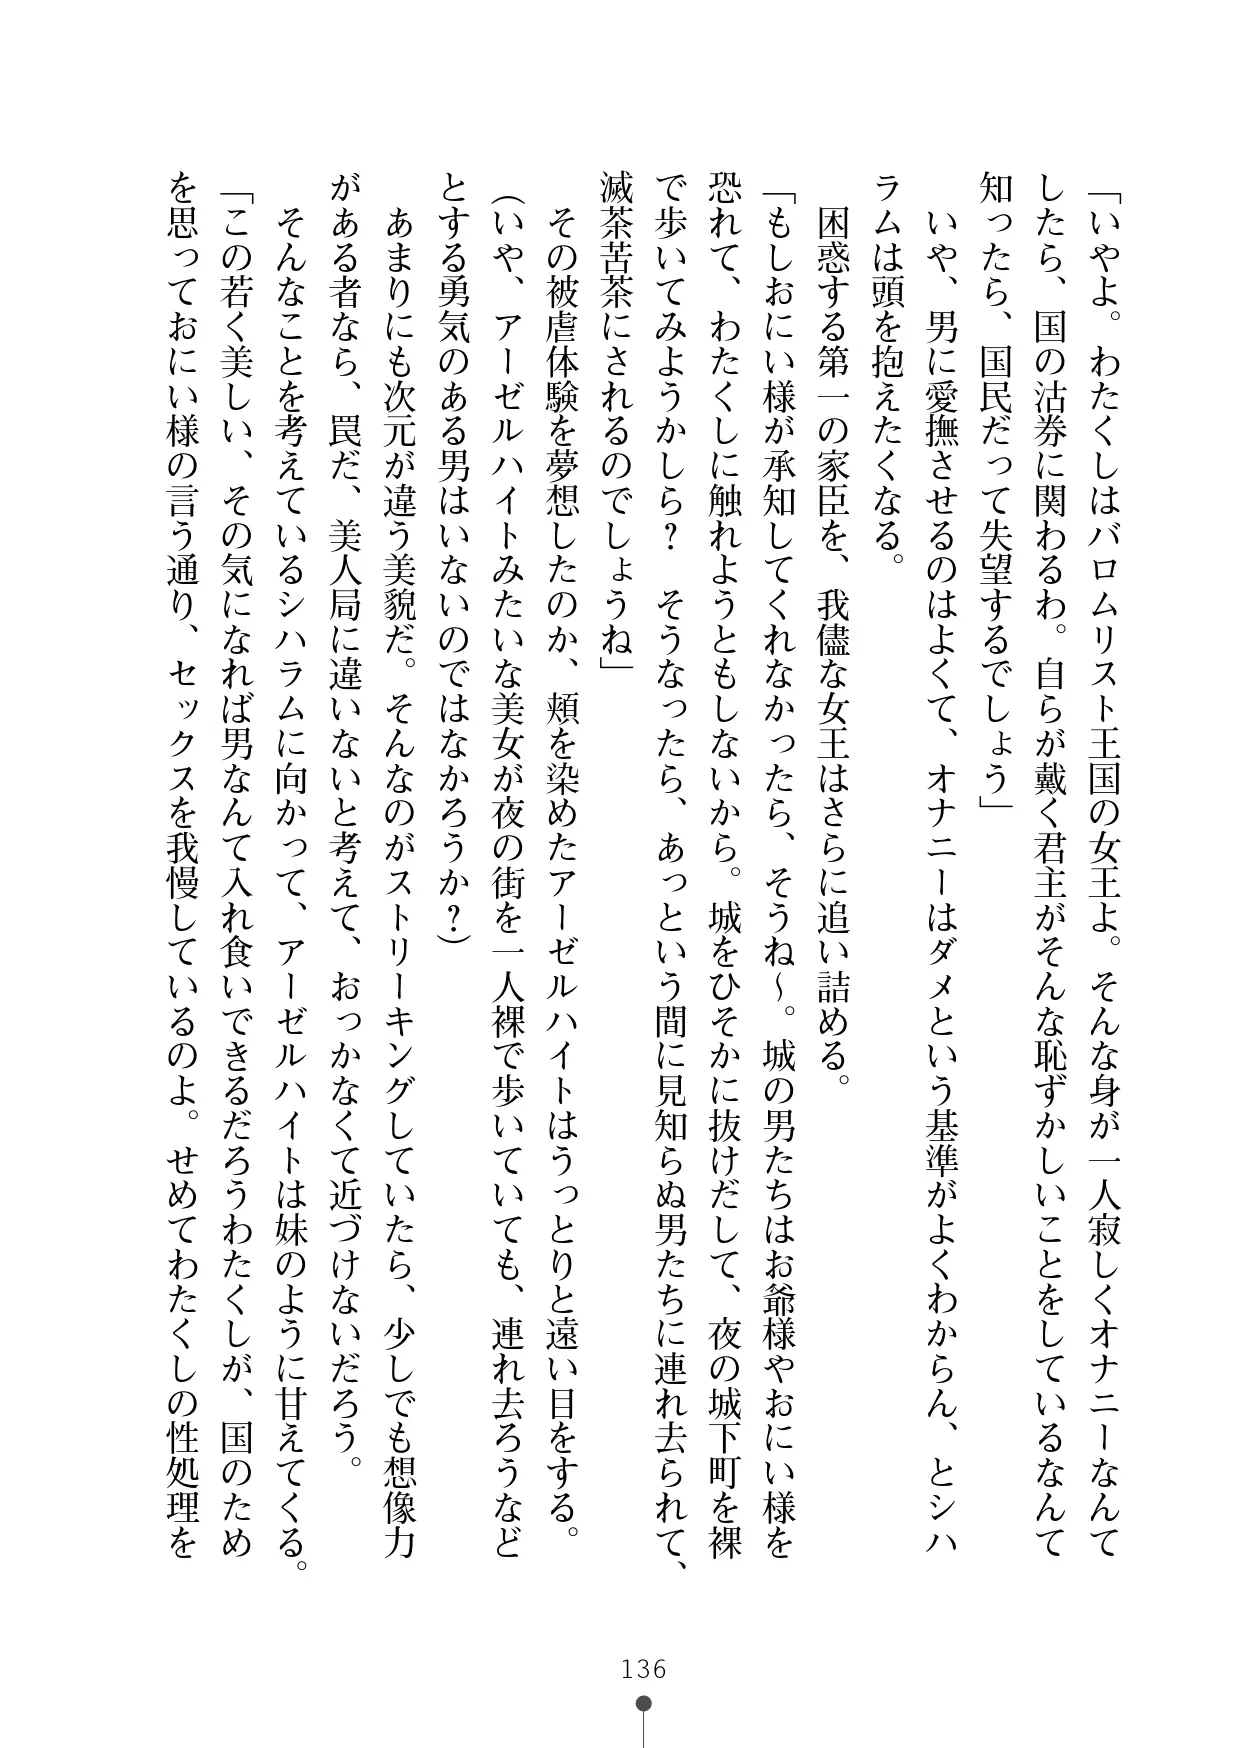 「いやよ。わたくしはバロムリスト王国の女王よ。そんな身が一人寂しくオナニーなんて
したら、国の沽券に関わるわ。自らが戴く君主がそんな恥ずかしいことをしているなんて
知ったら、国民だって失望するでしょう」
　いや、男に愛撫させるのはよくて、オナニーはダメという基準がよくわからん、とシハ
ラムは頭を抱えたくなる。
　困惑する第一の家臣を、我儘な女王はさらに追い詰める。
「もしおにい様が承知してくれなかったら、そうね～。城の男たちはお爺様やおにい様を
恐れて、わたくしに触れようともしないから。城をひそかに抜けだして、夜の城下町を裸
で歩いてみようかしら？　そうなったら、あっという間に見知らぬ男たちに連れ去られて、
滅茶苦茶にされるのでしょうね」
　その被虐体験を夢想したのか、頬を染めたアーゼルハイトはうっとりと遠い目をする。
（いや、アーゼルハイトみたいな美女が夜の街を一人裸で歩いていても、連れ去ろうなど
とする勇気のある男はいないのではなかろうか？）
　あまりにも次元が違う美貌だ。そんなのがストリーキングしていたら、少しでも想像力
がある者なら、罠だ、美人局に違いないと考えて、おっかなくて近づけないだろう。
　そんなことを考えているシハラムに向かって、アーゼルハイトは妹のように甘えてくる。
「この若く美しい、その気になれば男なんて入れ食いできるだろうわたくしが、国のため
を思っておにい様の言う通り、セックスを我慢しているのよ。せめてわたくしの性処理を
136